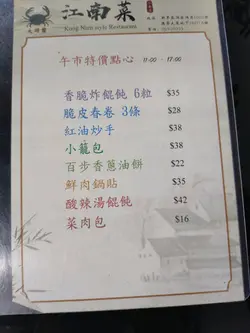 江南菜
Kong Nam style Restaurant
大閘蟹
午市特價點心 11:00 - 17:00
香脆炸餛飩 6粒 $35
脆皮春卷 3條 $28
紅油炒手 $38
小籠包 $38
百步香蔥油餅 $22
鮮肉鍋貼 $35
酸辣湯餛飩 $42
菜肉包 $16